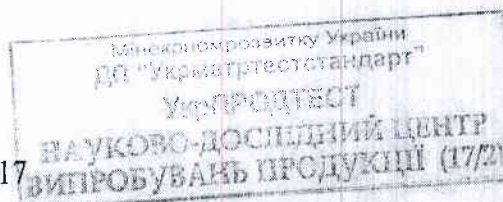 Мінекономрозвитку України
ДП "Укрметртестстандарт"
УкрПРОДТЕСТ
НАУКОВО-ДОСЛІДНИЙ ЦЕНТР
17 ВИПРОБУВАНЬ ПРОДУКЦІЇ (17/2)